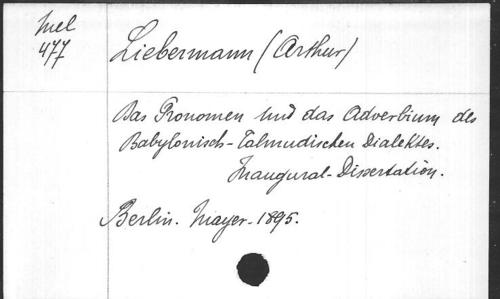 Mel
477
Liebermann (Arthur)
Das Pronomen und das Adverbium des
Babylonisch-Talmudischen Dialektes.
Inaugural-Dissertation.
Berlin. Mayer-1895.